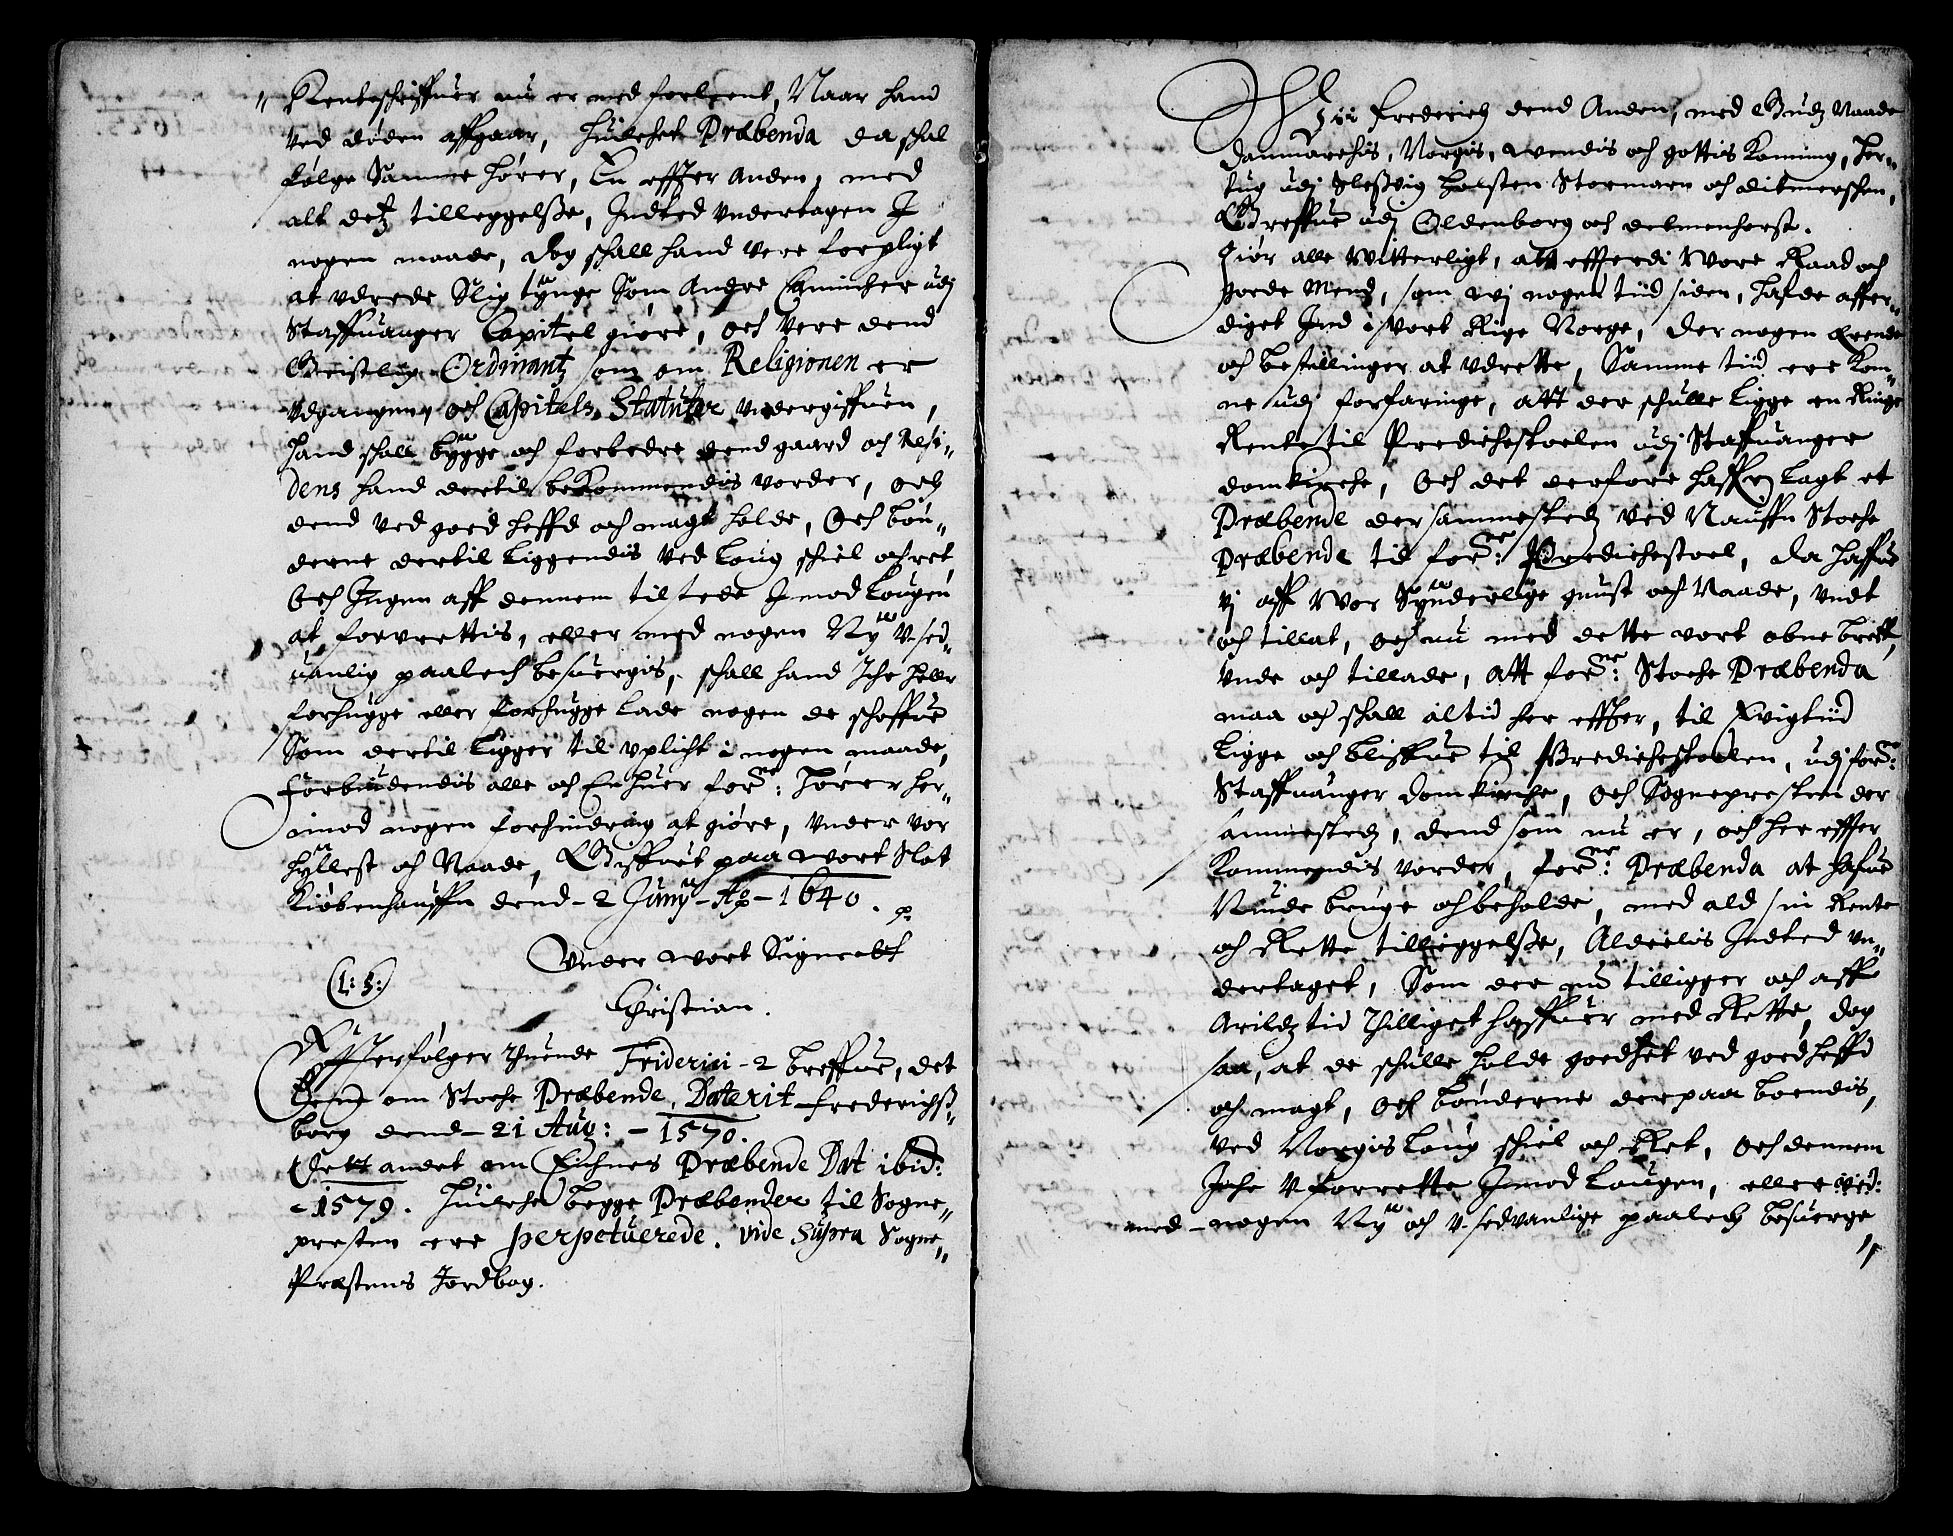 Renteschriffuer nu er med forleent, Naar hand
ved døden affgaar, huilchet Præbenda da schal
følge Samme hører, En effter anden, med
alt detz tilleggelsße, Indted vndertagen J
nogen maade, dog schall hand vere forpligt
at vdrede Slig tynge Som Andre Canicher udj
Staffuanger Capitel giøre, och vere dend
Geistlig Ordinantz som om Religionen er
udgangenn, och Capitels Statuter vndergiffuen,
Hand schall bygge och forbedre dend gaard och Resi„
dens hand dertil bekommendis vorder, och
dend ved goed heffd och magt holde, Och bøn„
derne dertil liggendis ved Loug schiel och ret,
Och Ingen aff dennem tilstede Jmod Lougen
at forvrettis, eller med nogen Ny V-sed„
uanlig paalech besuergis, schall hand Iche heller
forhugge eller forhugge lade nogen de schoffue
Som dertil ligger til vplicht i nogen maade,
Forbiudendis alle och Enhuer forne: Hører her„
imod nogen forhindring at giøre, vnder vor
hyllest och Naade, Giffuet paa wort Slot
Kiøbenhauffn dend - 2 Junij - Ao - 1640.
Vnder wort Signeteth
(L: S:)
Christian.
Effterfølger thuende Friderici - 2 breffue, det
Eene om Stoche Præbende, Daterit Frederichsß„
borg dend - 21 Aug: - 1570.
Dett andet om Præbende Dat ibid:
- 1579. huilche begge Præbender til Sogne„
presten ere perpetuerede. vide Supra Sogne„
Præstens Jordbog.
Wii Frederich dend Anden, med Gudz Naade
Danmarchis, Norgis, wendis och gottis Konning, Her„
tug udj Sleßvig Holsten Stormarn och Ditmerschen,
Greffue udj Oldenborg och Delmenhorst.
Giør alle Witterligt, att effterdi Wore Raad och
goede Mend, som wj nogen tiid siden, hafde affer„
diget Ind i vort Rige Norge, der nogen Erende
och bestillinger at vdrette, Samme tiid ere Kom„
ne udj forfaringe, att der schulle ligge en Ringe
Rente til Predichestoelen udj Staffuanger
domkirche, Och det derfore haffuer lagt et
Præbende der sammestedz ved Nauffn Stoche
Præbende til forne: Predichestoel, da haffue
vj aff Wor Synderlige gunst och Naade, vndt
och tillat, och nu med dette vort obne breff,
vnde och tillade, att forne: Stoche Præbenda
maa och schall altid her effter, til Evigtiid
ligge och bliffue til Predichestoelen, udj forne:
Staffuanger Domkirche, Och Sognepresten der
sammestedz, dend som nu er, och her effter
Kommendis vorder, forne: Præbenda at hafue
Niude bruge och beholde, med ald sin Rente
och Rette tilleggelsße, Aldelis Indted vn„
dertaget, Som der nu tilligger och aff
Arildz tid thilliget haffuer med Rette, dog
saa, at de schulle holde goedset ved goed heffd
och magt, Och bønderne derpaa boendis,
ved Norgis Loug schiel och Ret, Och dennem
Iche V forrette Jmod Lougen, eller ved:
med - nogen Ny och V-sedvanlige paalech besuerge„